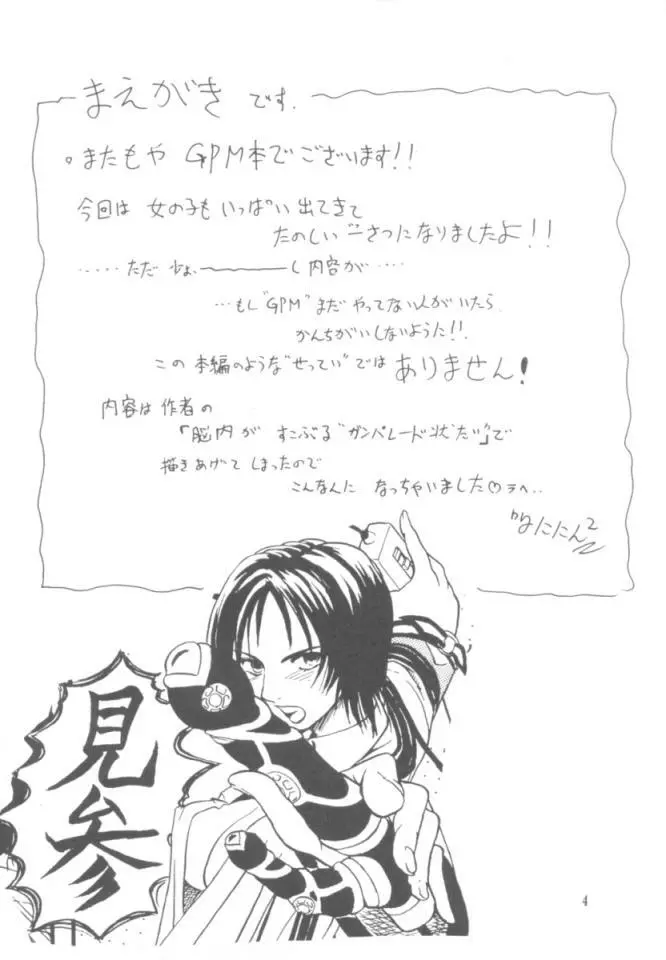 まえがき です.
。またもや GPM本でございます!!
今回は 女の子も いっぱい 出てきて
たのしい 一さつになりましたよ!!
‥‥‥ ただ 少ょ―――し 内容が‥‥‥
…もし"GPM"まだ やってない人がいたら
かんちがいしないように!!
この 本編のような"せってい"では ありません!
内容は 作者の
「脳内が すこぶる"ガンパレード状たい"」で
描きあげて しまったので
こんなんに なっちゃいました♡ラヘ‥
なににん2
見参
4